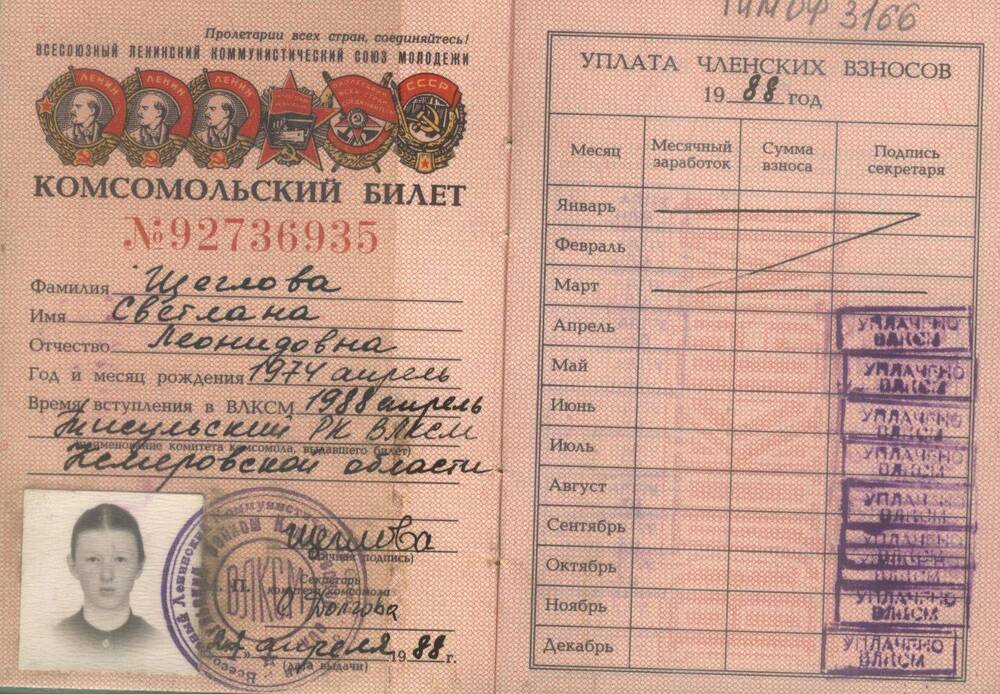 Пролетарии всех стран, соединяйтесь!
ВСЕСОЮЗНЫЙ ЛЕНИНСКИЙ КОММУНИСТИЧЕСКИЙ СОЮЗ МОЛОДЕЖИ
ЛЕНИН ЛЕНИН ЛЕНИН СССР
КОМСОМОЛЬСКИЙ БИЛЕТ
№92736935
Фамилия Щеглова
Имя Светлана
Отчество Леонидовна
Год и месяц рождения 1974 апрель
Время вступления в ВЛКСМ 1988 апрель
Тисульский РК ВЛКСМ
(наименование комитета комсомола, выдавшего билет)
Кемеровской области
Щеглова
(личная подпись)
ВЛКСМ
Секретарь
комитета комсомола
Долгова
апреля 1988 г.
(дата выдачи)
ТИМ ОФ 3166
УПЛАТА ЧЛЕНСКИХ ВЗНОСОВ
19 88 год
Месяц Месячный заработок Сумма взноса Подпись секретаря
Январь
Февраль
Март
Апрель УПЛАЧЕНО ВЛКСМ
Май УПЛАЧЕНО ВЛКСМ
Июнь УПЛАЧЕНО ВЛКСМ
Июль УПЛАЧЕНО ВЛКСМ
Август УПЛАЧЕНО ВЛКСМ
Сентябрь УПЛАЧЕНО ВЛКСМ
Октябрь УПЛАЧЕНО ВЛКСМ
Ноябрь УПЛАЧЕНО ВЛКСМ
Декабрь УПЛАЧЕНО ВЛКСМ